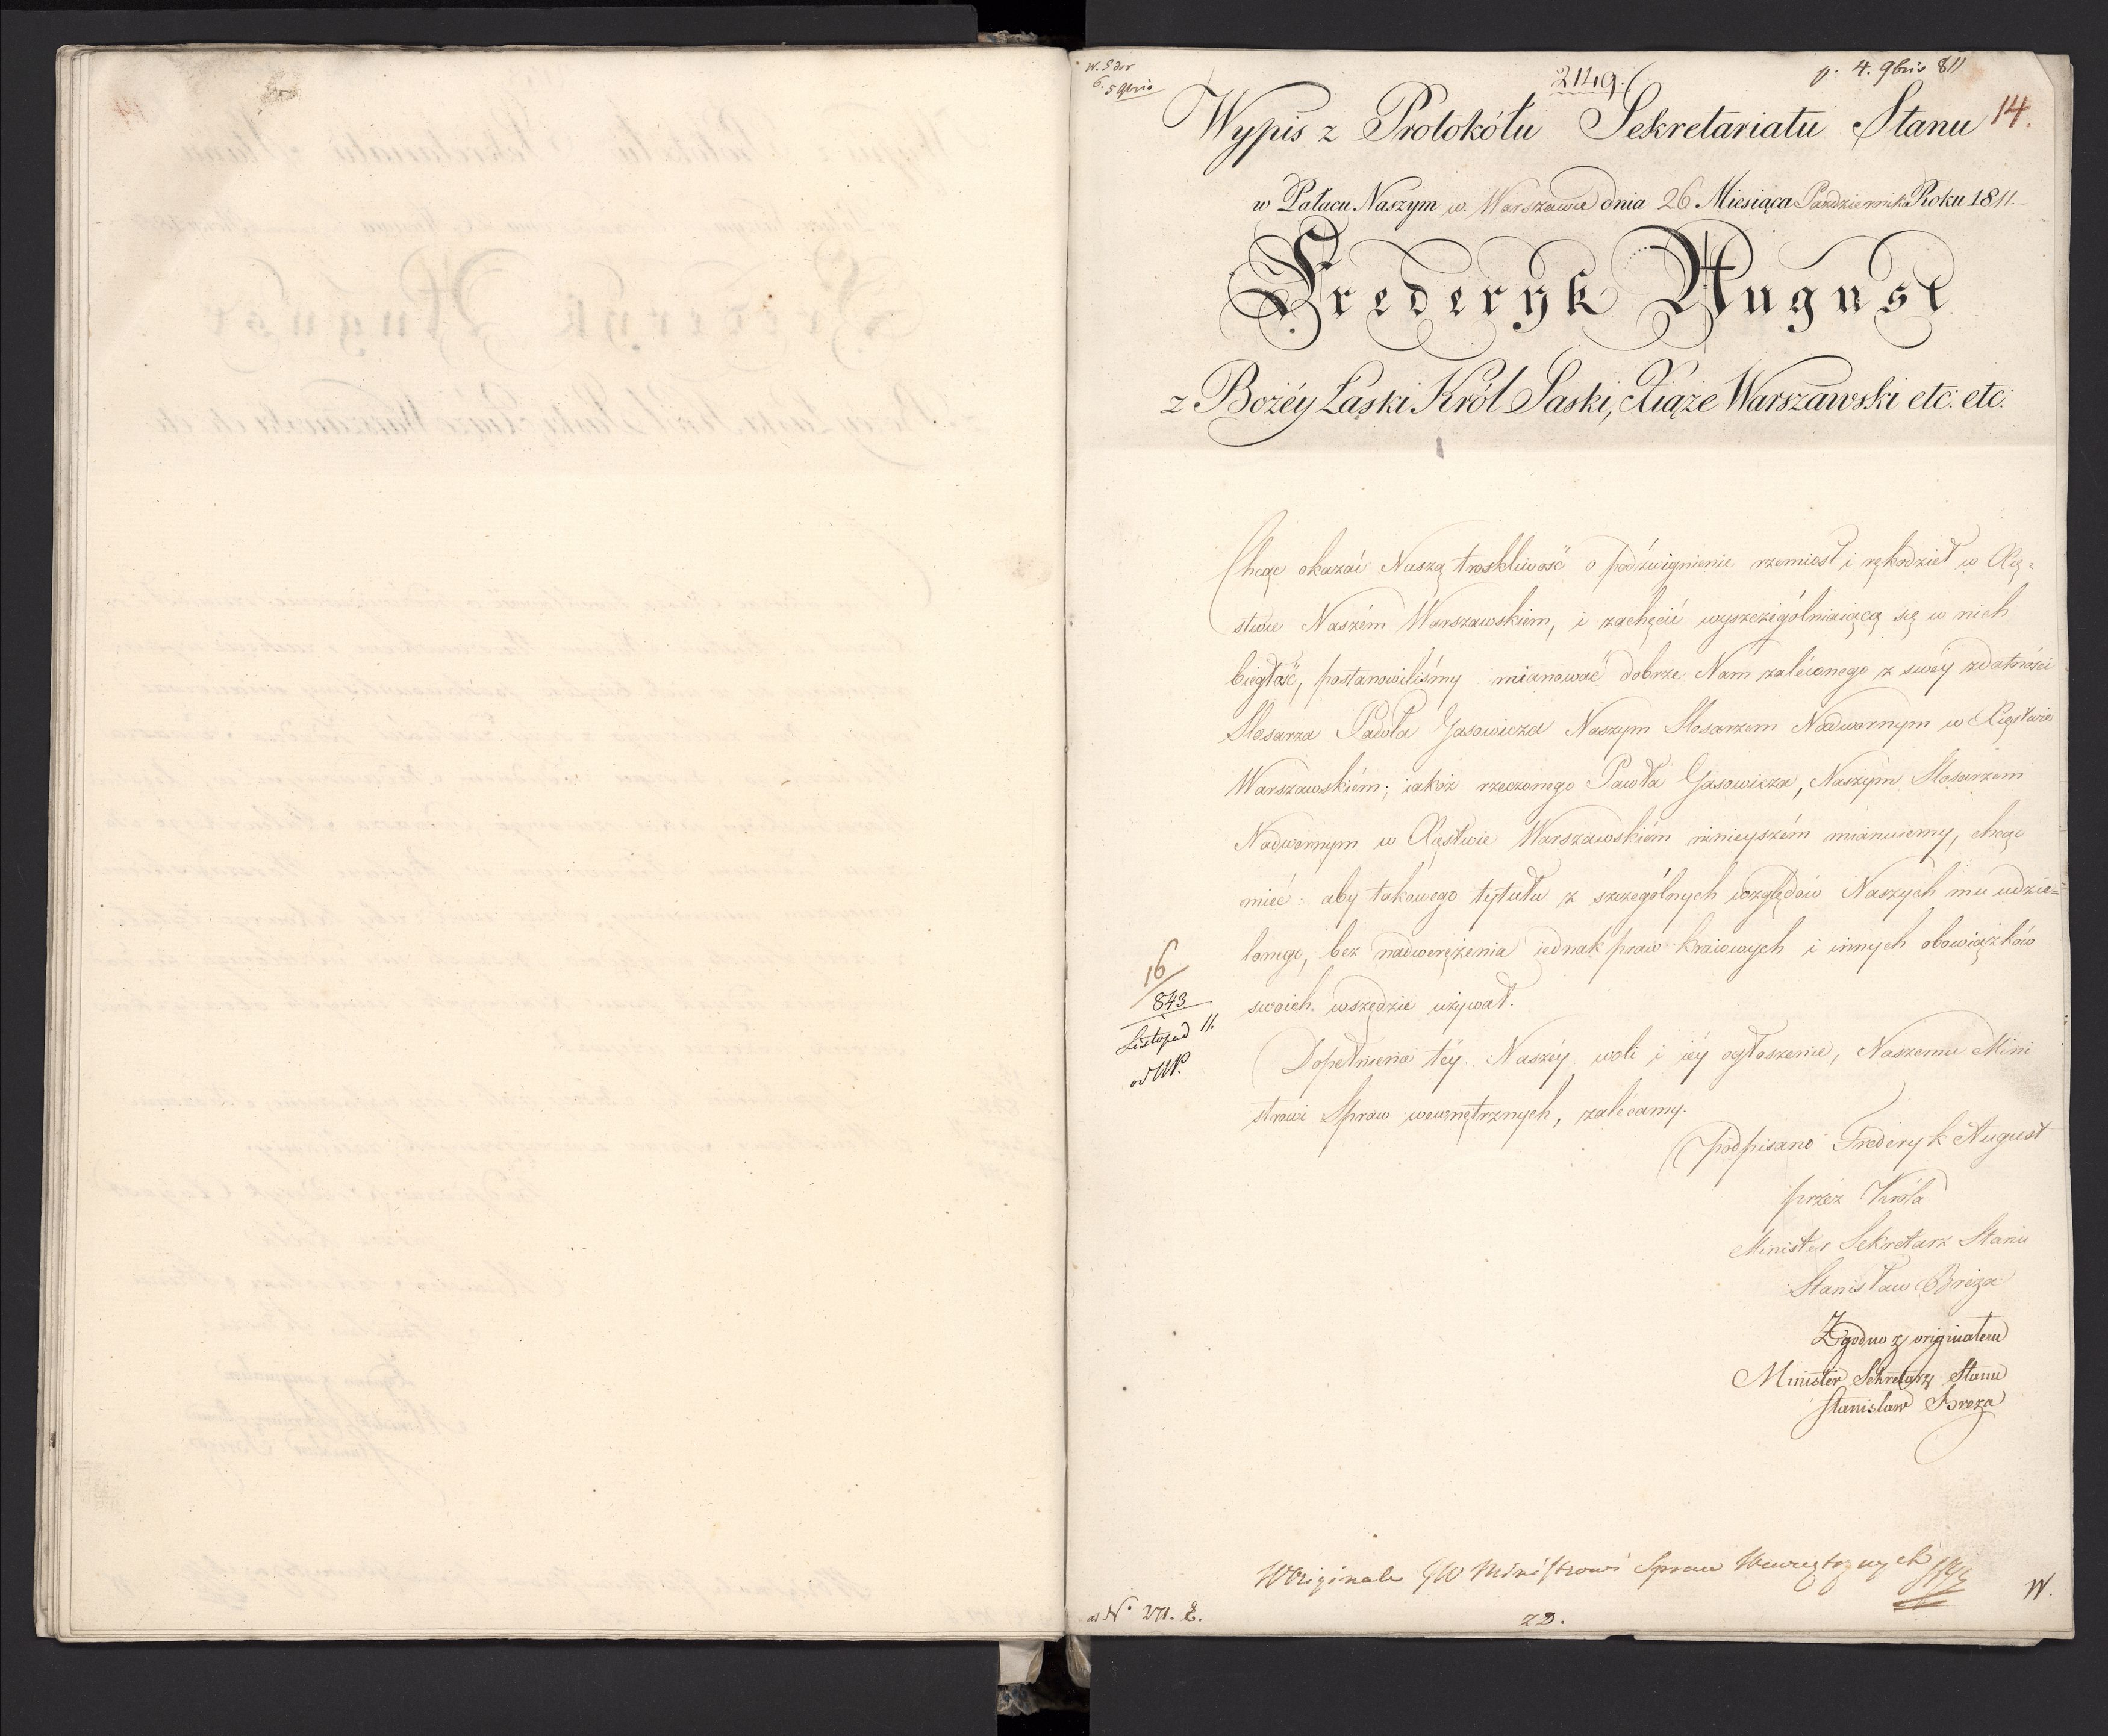 p. 4. 9bris 811
6. 5 9bris
2149.
14.
Wypis z Protokółu Sekretariatu Stanu
w Pałacu Naszym w. Warszawie dnia 26 Miesiąca Pazdziernika Roku 1811.
Frederyk August
z Bożéy Łaski Król Saski, Xiąże Warszawski etc: etc:
Chcąc okazać Naszą troskliwość o podźwignienie rzemiosł i rękodzieł w Xię-
stwie Naszém Warszawskiem, i zachęcić wyszczególniaiącą się w nich
biegłość, postanowiliśmy mianować dobrze Nam zaleconego z swéy zdatności
Slosarza Pawła Gasowicza Naszym Slosarzem Nadwornym w Xięstwie
Warszawskiém; iakoż rzeczonego Pawła Gasowicza, Naszym Slosarzem
Nadwornym w Xięstwie Warszawskiém ninieyszém mianuiemy, chcąc
mieć: aby takowego tytułu z szczególnych względów Naszych mu udzie=
lonego, bez nadwerężenia iednak praw kraiowych i innych obowiązków
swoich wszędzie używał.
16
843
Listopad 11.
Dopełnienia téy Naszéy woli i iéy ogłoszenie, Naszemu Mini
strowi Spraw wewnętrznych, zalecamy.
podpisano Frederyk August
przez Króla
Minister Sekretarz Stanu
Stanisław Breza
Zgodno z originałem
Minister Sekretarz Stanu
Stanisław Breza
W Originale JW Ministrowi Spraw Wewnętrznych
W.
ad No 271. E.